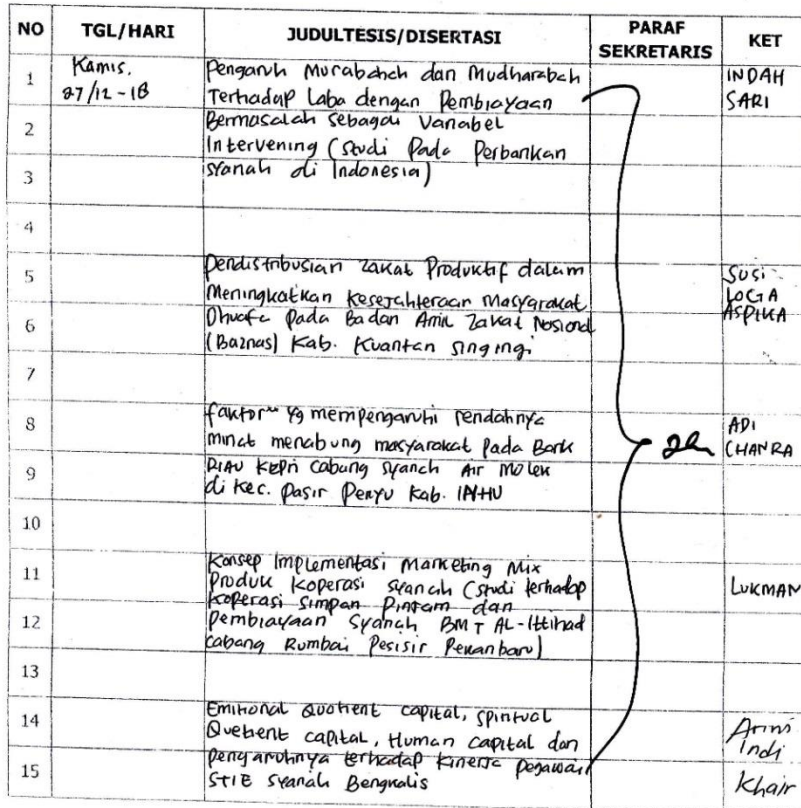 NO TGL/HARI JUDULTESIS/DISERTASI PARAF SEKRETARIS KET
1 Kamis, 27/12-18 Pengaruh Murabahah dan Mudharabah INDAH
Terhadap Laba dengan Pembiayaan SARI
2 Bermasalah sebagai Variabel
Intervening (studi Pada Perbankan
3 syariah di Indonesia)
4
5 Pendistribusian zakat Produktif dalam SUSI
Meningkatkan Kesejahteraan Masyarakat LOGA
6 Dhuafa pada Badan Amil Zakat Nasional ASPIKA
(Baznas) Kab. Kuantan singingi
7
8 faktor" yg mempengaruhi rendahnya ADI
minat menabung masyarakat pada Bank CHANRA
9 RIAU KEPRI cabang syariah Air Molek
di Kec. Pasir Penyu Kab. INHU
10
11 Konsep Implementasi Marketing Mix
Produk Koperasi syariah (studi terhadap LUKMAN
Koperasi Simpan Pinjam dan
12 Pembiayaan Syariah BMT AL-Ittihad
cabang Rumbai Pesisir Pekanbaru)
13
14 Emitional Quotient capital, spiritual Arini
Quetient capital, Human capital dan Indi
15 pengaruhnya terhadap kinerja pegawai Khair
STIE Syariah Bengkalis